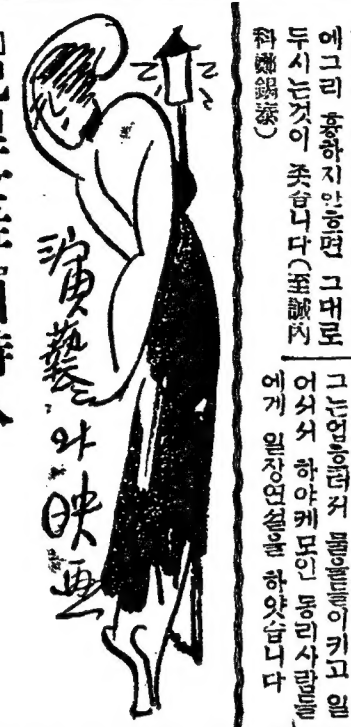 에그리 흉하지안흐면 그대로
두시는것이 좃습니다(至誠內
科鄭錫泰)
물을들이키고 일
어서서 하야케모인 동리사람들
에게 일장연설을 하얏습니다
演藝와映画